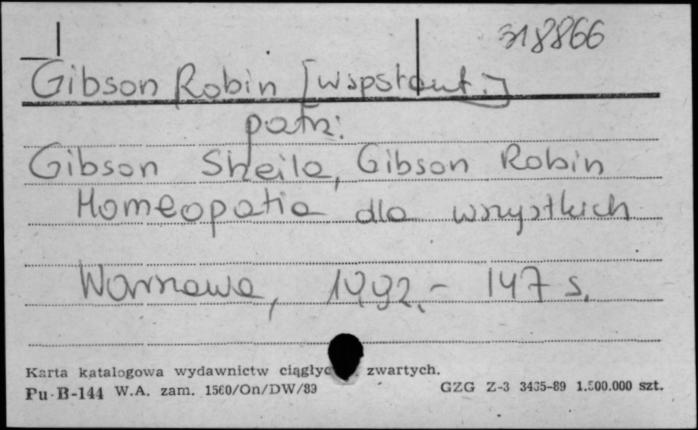 318866
Gibson Robin [współaut.]
patrz:
Gibson Sheila, Gibson Robin
Homeopatia dla wszystkich
Warszawa, 1992.- 147 s.
Karta katalogowa wydawnictw ciągłyc zwartych.
Pu-B-144 W.A. zam. 1560/On/DW/83 GZG Z-3 3435-89 1.500.000 szt.